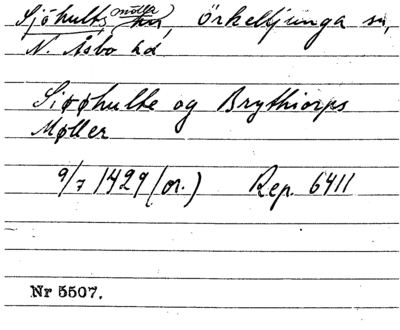 Sjöhults möller, Örkelljunga sn,
N. Åsbo hd
Siøøhulte og Brythiorps
Møller
9/7 1429 (or.) Rep. 6411
Nr 5507.